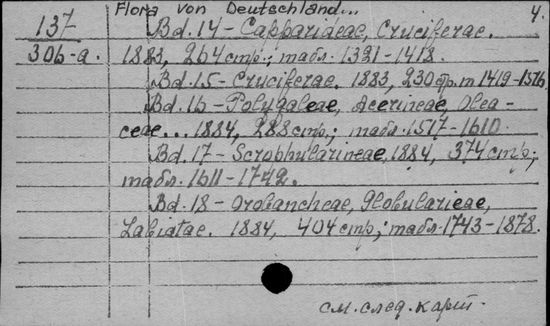 Flora von Deutschland... 4.
137 Bd. 14 - Capparideae, Cruciferae.
306-a. 1883, 264 стр.; табл. 1321-1418.
Bd. 15 - Cruciferae. 1883, 230 стр. т 1419-1516
Bd. 16 - Polygaleae, Acerineae, Olea-
ceae... 1884, 288 стр.; табл. 1517-1610.
Bd. 17 - Scrophularineae, 1884, 374 стр.;
табл. 1611-1742.
Bd. 18 - Orobancheae, Globularieae,
Labiatae. 1884, 404 стр.; табл. 1743-1878.
см. след. карт.